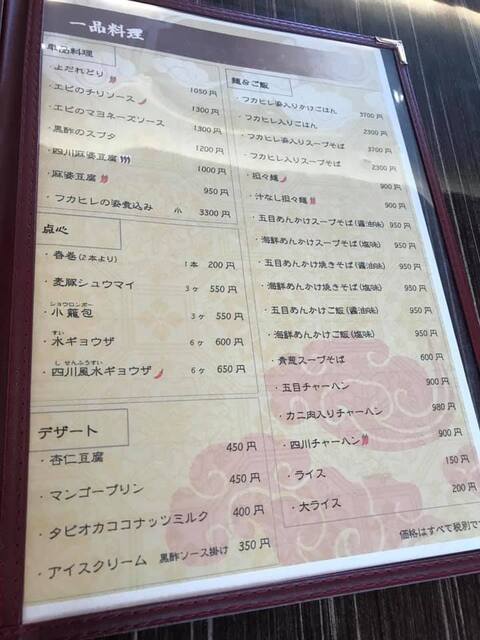 一品料理
単品料理
・よだれどり 1050円
・エビのチリソース 1300円
・エビのマヨネーズソース 1300円
・黒酢のスブタ 1200円
・四川麻婆豆腐 1000円
・麻婆豆腐 950円
・フカヒレの姿煮込み 小 3300円
点心
・春巻(2本より) 1本 200円
・麦豚シュウマイ 3ヶ 550円
ショウロンポー
・小籠包 3ヶ 550円
すい
・水ギョウザ 6ヶ 600円
しせんふうすい
・四川風水ギョウザ 6ヶ 650円
デザート
・杏仁豆腐 450円
・マンゴープリン 450円
・タピオカココナッツミルク 400円
・アイスクリーム 黒酢ソース掛け 350円
麺&ご飯
・フカヒレ姿入りかけごはん 3700円
・フカヒレ入りごはん 2300円
・フカヒレ姿入りスープそば 3700円
・フカヒレ入りスープそば 2300円
・担々麺 900円
・汁なし担々麺 900円
・五目あんかけスープそば(醤油味) 950円
・海鮮あんかけスープそば(塩味) 950円
・五目あんかけ焼きそば(醤油味) 950円
・海鮮あんかけ焼きそば(塩味) 950円
・五目あんかけご飯(醤油味) 950円
・海鮮あんかけご飯(塩味) 950円
・青葱スープそば 600円
・五目チャーハン 900円
・カニ肉入りチャーハン 980円
・四川チャーハン 900円
・ライス 150円
・大ライス 200円
価格はすべて税別で